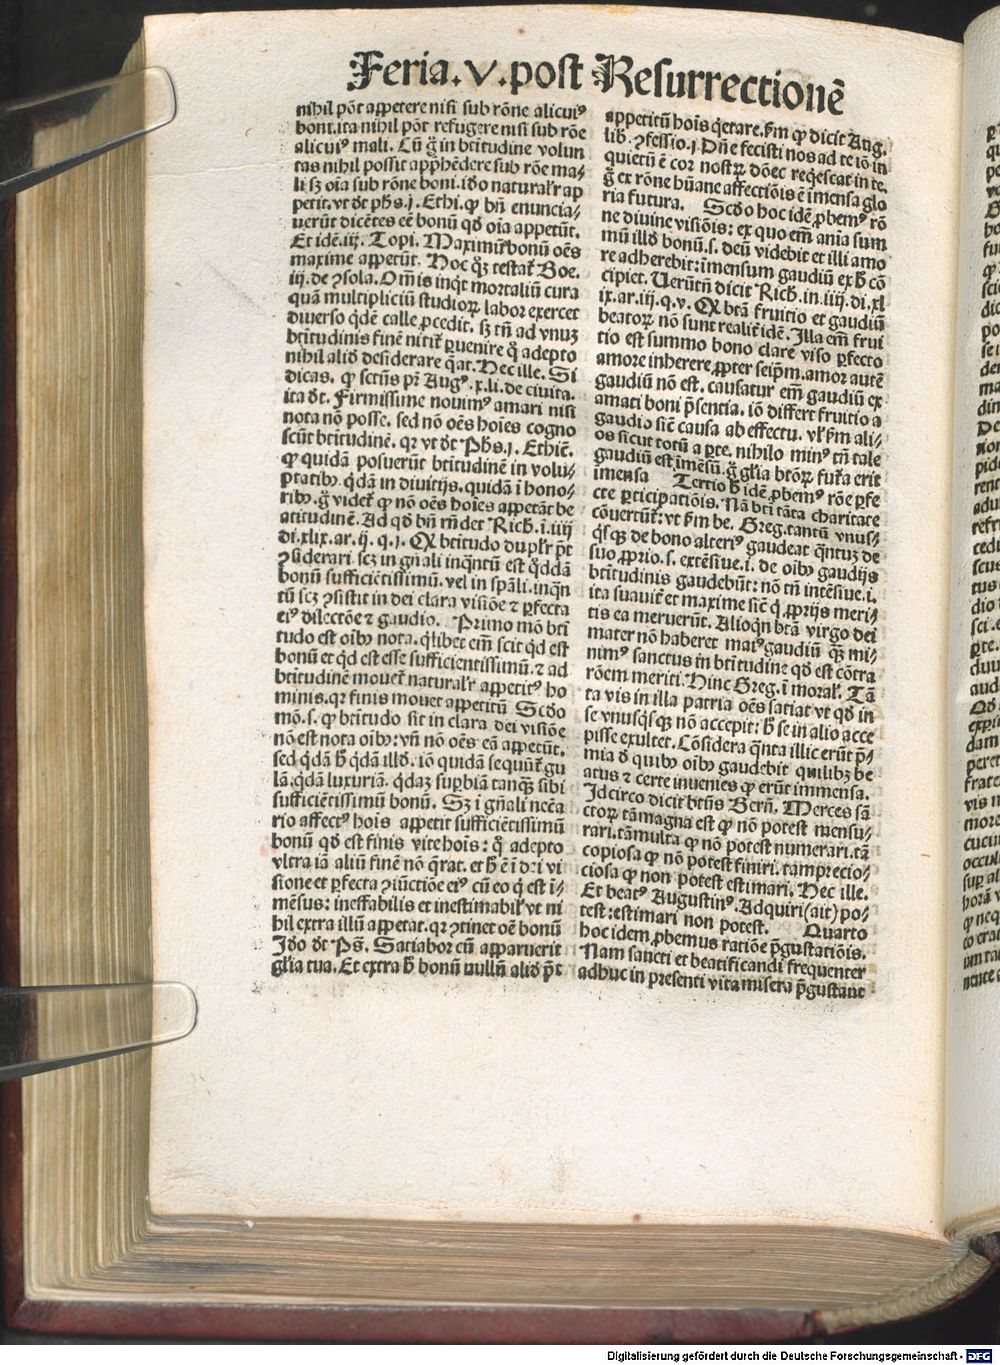 Feria.v.post Resurrectionē
nihil pōt appetere nisi sub rōne alicuiꝰ
boni.ita nihil pōt refugere nisi sub rōe
alicuiꝰ mali. Cū g̊ in btītudine volun
tas nihil possit app̄hēdere sub rōe ma⸗
li sꝫ oīa sub rōne boni.iđo naturalr̄ ap
petit.vt đt ph̄s.j.Ethi.ꝙ bn̄ enuncia⸗
uerūt dicētes eē bonū qđ oīa appetūt.
Et idē.iij. Topi. Maximū bonū oēs
maxime appetūt. Hoc q̄ꝫ testat᷑ Boe.
iij.de ↄsola. Om̄is inqt mortaliū cura
quā multipliciū studioꝝ labor exercet
diuerso qđē calle ꝓcedit. sꝫ tn̄ ad vnuꝫ
btītudinis finē nitit᷑ ꝑuenire q̊ adepto
nihil aliđ desiderare q̄at. Hec ille. Si
dicas. ꝙ sctūs pr̄ Augꝰ.x.li.de ciuita.
ita đt. Firmissime nouimꝰ amari nisi
nota nō posse. sed nō oēs hoīes cogno
scūt btītudinē. qr vt đt Ph̄s.j. Ethic̄.
ꝙ quidā posuerūt btītudinē in volu⸗
ptatibꝫ q̄dā in diuitijs.quidā ī hono⸗
ribꝫ.g̊ videt᷑ ꝙ nō oēs hoīes appetāt be
atitudinē. Ad qđ bn̄ rn̄det Rich̄. ī.iiij
di.xlix.ar.ij.q.j. Ꝙ btītudo duplr̄ p̄t
ↄsiderari.scꝫ in gn̄ali inq̄ntū est q̄ddā
bonū sufficiētissimū.vel in spāli.inq̄n
tū scꝫ ↄsistit in dei clara visiōe ⁊ ꝑfecta
eiꝰ dilectōe ⁊ gaudio. Primo mō btī
tudo est oībꝫ nota. qlibet em̄ scit qđ est
bonū et qđ est esse sufficientissimū.⁊ ad
btītudinē mouet᷑ naturalr̄ appetitꝰ ho
minis.qr finis mouet appetitū Scđo
mō.s. ꝙ btītudo sit in clara dei visiōe
nō est nota oībꝫ:vn̄ nō oēs eā appetūt.
sed q̄dā h̄ q̄dā illđ. iō quidā sequūt᷑ gu
lā.q̄dā luxuriā. q̄daꝫ suꝑbiā tanq̄ꝫ sibi
sufficiētissimū bonū. Sꝫ ī gn̄ali necēa
rio affectꝰ hoīs appetit sufficiētissimū
bonū qđ est finis vite hoīs: q̊ adepto
vltra iā aliū finē nō q̄rat. et h̄ ē ī d̄:ī vi
sione et ꝑfecta ↄiūctiōe eiꝰ cū eo q̇ est ī⸗
mēsus: ineffabilis et inestimabil᷑ vt ni
hil extra illū appetat.qr ↄtinet oē bonū
Iđo đt Ps̄. Satiabor cū apparuerit
gl̄ia tua. Et extra h̄ bonū nullū aliđ p̄t
appetitū hoīs q̄etare.ẜm ꝙ dicit Aug.
lib. ↄfessio.j. Dn̄e fecisti nos ad te iō in
quietū ē cor nostrꝝ dōec reqescat in te.
g̊ ex rōne hūane affectiōis ē īmensa glo
ria futura. Scđo hoc idē ꝓbemꝰ rō
ne diuine visiōis: ex quo em̄ aīa sum
mū illđ bonū.s. deū videbit et illi amo
re adherebit:īmensum gaudiū ex h̄ cō
cipiet. Uerūtn̄ dicit Rich̄.in.iiij.di.xl
ix.ar.iij.q.v. Ꝙ btā fruitio et gaudiū
beatoꝝ nō sunt realit᷑ idē. Illa em̄ frui
tio est summo bono clare viso ꝑfecto
amore inherere ꝓpter seip̄m.amor autē
gaudiū nō est. causatur em̄ gaudiū ex
amati boni p̄sentia. iō differt fruitio a
gaudio sic̄ causa ab effectu. vl᷑ ẜm ali⸗
os sicut totū a ꝑte. nihilo minꝰ tn̄ tale
gaudiū est īmēsū.g̊ gl̄ia btōꝝ fut᷑a erit
īmensa Tertio h̄ idē ꝓbemꝰ rōe ꝑfe
cte ꝑticipatiōis. Nā btī tāta charitate
cōuertūt᷑:vt ẜm be. Greg.tantū vnus⸗
q̇sqꝫ de bono alteriꝰ gaudeat q̄ntuꝫ de
suo ꝓprio.s. extēsiue.i. de oībꝫ gaudijs
btītudinis gaudebūt: nō tn̄ intēsiue.i.
ita suauit᷑ et maxime sic̄ q̇ ꝓprijs meri⸗
tis ea meruerūt. Alioqn btā virgo dei
mater nō haberet maiꝰ gaudiū q̄ꝫ mi⸗
nimꝰ sanctus in btītudine qđ est cōtra
rōem meriti. Hinc Greg. ī moral᷑. Tā
ta vis in illa patria oēs satiat vt qđ in
se vnusq̇sqꝫ nō accepit: h̄ se in alio acce
pisse exultet. Cōsidera q̄nta illic erūt p̄⸗
mia đ quibꝫ oībꝫ gaudebit quilibꝫ be
atus ⁊ certe inuenies ꝙ erūt immensa.
Idcirco dicit btūs Bern̄. Merces sā
ctoꝝ tā magna est ꝙ nō potest mensu⸗
rari.tā multa ꝙ nō potest numerari.tā
copiosa ꝙ nō potest finiri. tam precio⸗
ciosa ꝙ non potest estimari. Hec ille.
Et beatꝰ Augustinꝰ. Adquiri(ait) po⸗
test:estimari non potest. Quarto
hoc idem ꝓbemus ratiōe p̄gustatiōis.
Nam sancti et beatificandi frequenter
adhuc in presenti vita misera p̄gustant
Digitalisierung gefördert durch die Deutsche Forschungsgemeinschaft - DFG